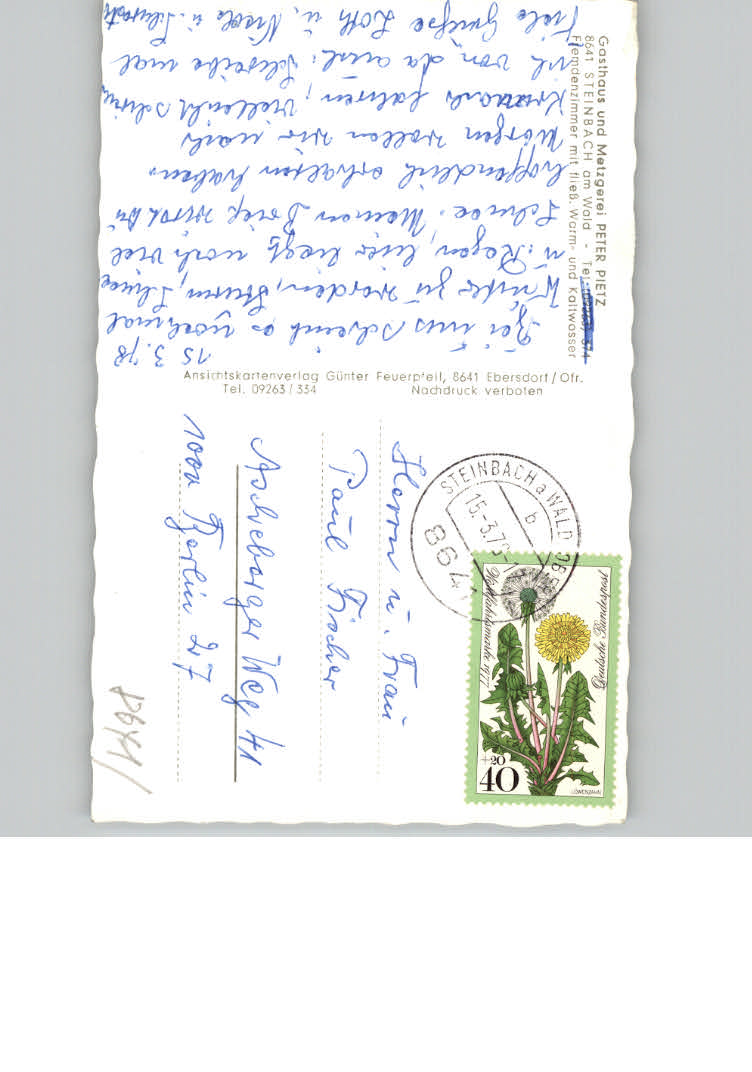 Gasthaus und Metzgerei PETER PIETZ
8641 STEINBACH am Wald - Tel.
Fremdenzimmer mit fließ. Warm- und Kaltwasser
15 3. 78
Bei uns scheint es nochmal
Winter zu werden, Sturm, Schnee
u. Regen, hier liegt noch viel
Schnee. Meinen Brief wirst Du
hoffendlich erhalten haben.
Morgen wollen wir nach
Kronach fahren, vielleicht schreib
ich von da aus. Schreibe mal
Viele Grüße
Ansichtskartenverlag Günter Feuerpfeil, 8641 Ebersdorf/Ofr.
Tel. 09263/334 Nachdruck verboten
Herrn u. Frau
Paul Fischer
Ascheberger Weg 41
1000 Berlin 27
STEINBACH a WALD
b
15.-3.78
8641
Deutsche Bundespost
Wohlfahrtsmarke 1977
+20
40
LÖWENZAHN